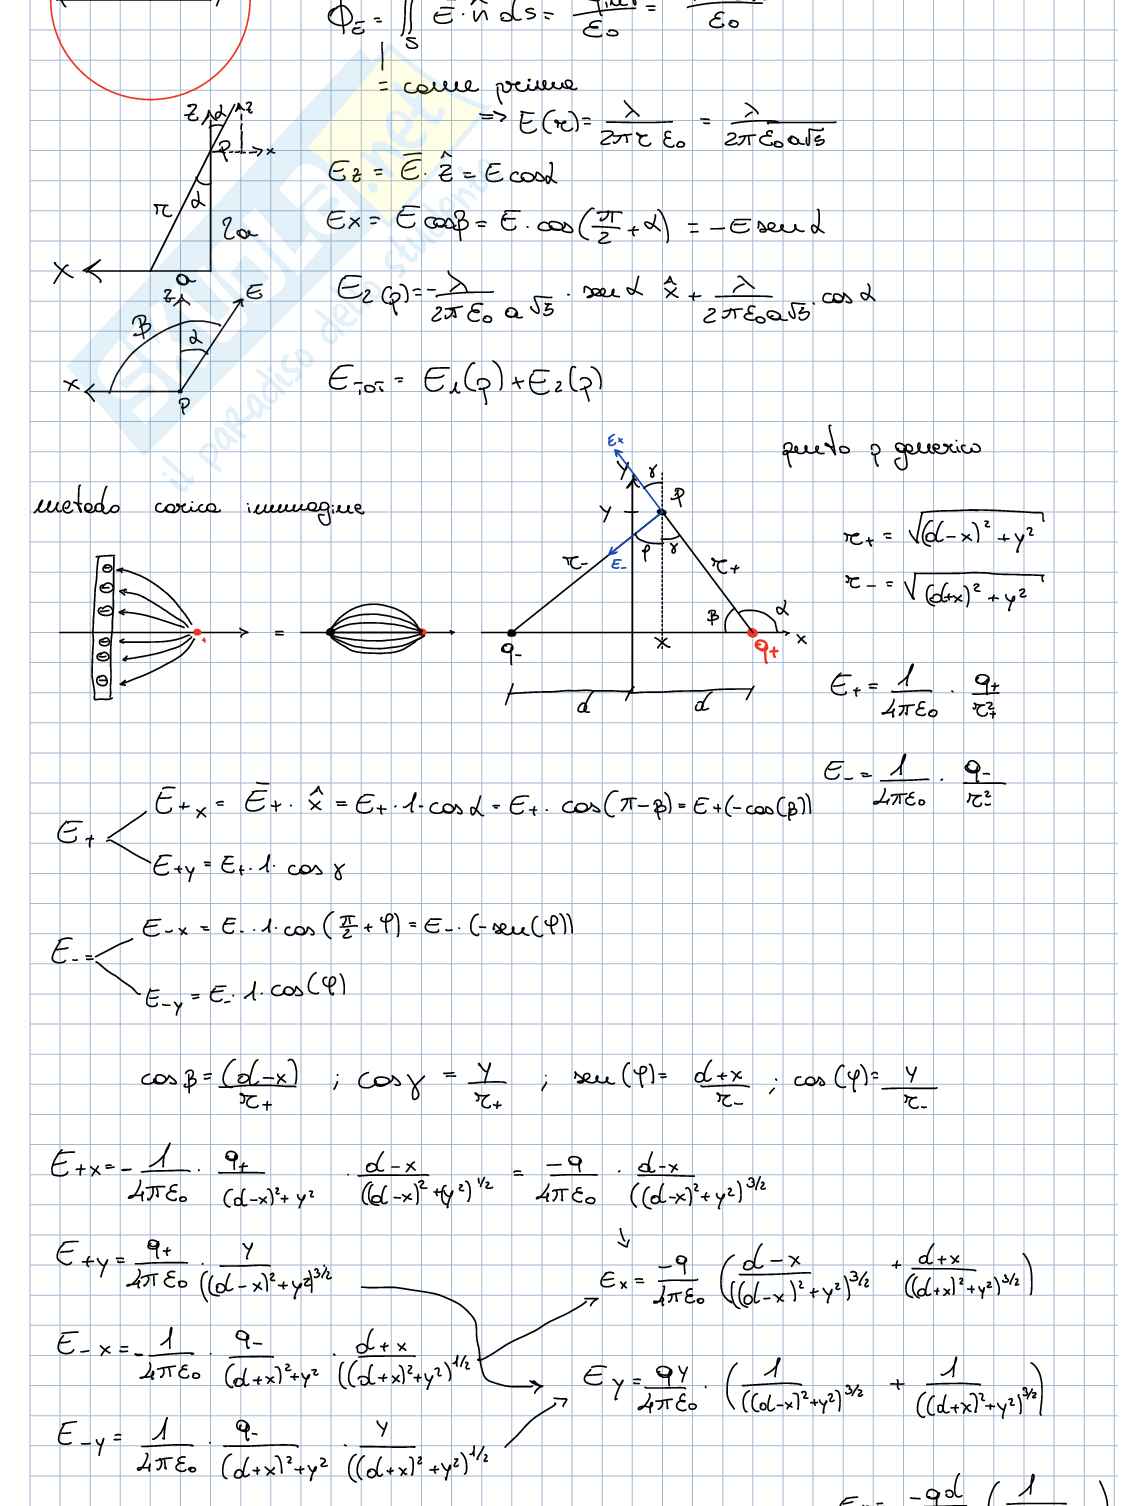 Φ_E = ∬_S Ē · n̂ ds = q_int/ε₀ = /ε₀
= come prima
⇒ E(r) = λ/(2πr ε₀) = λ/(2πε₀a√5)
z α z
P x
E_z = Ē · ẑ = E cosα
r α 2a
E_x = E cosβ = E · cos(π/2 + α) = -E sen α
x a
z E
E₂(p) = -λ/(2πε₀ a√5) · sen α x̂ + λ/(2πε₀a√5) · cos α
β α
x P
E_TOT = E₁(p) + E₂(p)
SKUOLA.net
il paradiso dello studente
punto p generico
metodo carica immagine
Ex y γ P
y
r- E- φ γ r+
β α
q- x q+ x
d d
=
r₊ = √((d-x)² + y²)
r₋ = √((d+x)² + y²)
E₊ = 1/(4πε₀) · q₊/r₊²
E₋ = 1/(4πε₀) · q₋/r₋²
E₊ E₊x = Ē₊ · x̂ = E₊ · 1 · cos α = E₊ · cos(π-β) = E₊(-cos(β))
E₊y = E₊ · 1 · cos γ
E₋ = E₋x = E₋ · 1 · cos(π/2 + φ) = E₋ · (-sen(φ))
E₋y = E₋ · 1 · cos(φ)
cos β = (d-x)/r₊ ; cos γ = y/r₊ ; sen(φ) = d+x/r₋ ; cos(φ) = y/r₋
E₊x = - 1/(4πε₀) · q₊/((d-x)²+y²) · d-x/((d-x)²+y²)^1/2 = -q/(4πε₀) · d-x/((d-x)²+y²)^3/2
E₊y = q₊/(4πε₀) · y/((d-x)²+y²)^3/2
↓
E_x = -q/(4πε₀) (d-x/((d-x)²+y²)^3/2 + d+x/((d+x)²+y²)^3/2)
E₋x = - 1/(4πε₀) · q₋/((d+x)²+y²) · d+x/((d+x)²+y²)^1/2
E_y = qy/(4πε₀) · (1/((d-x)²+y²)^3/2 + 1/((d+x)²+y²)^3/2)
E₋y = 1/(4πε₀) · q₋/((d+x)²+y²) · y/((d+x)²+y²)^1/2
-qd ( 1